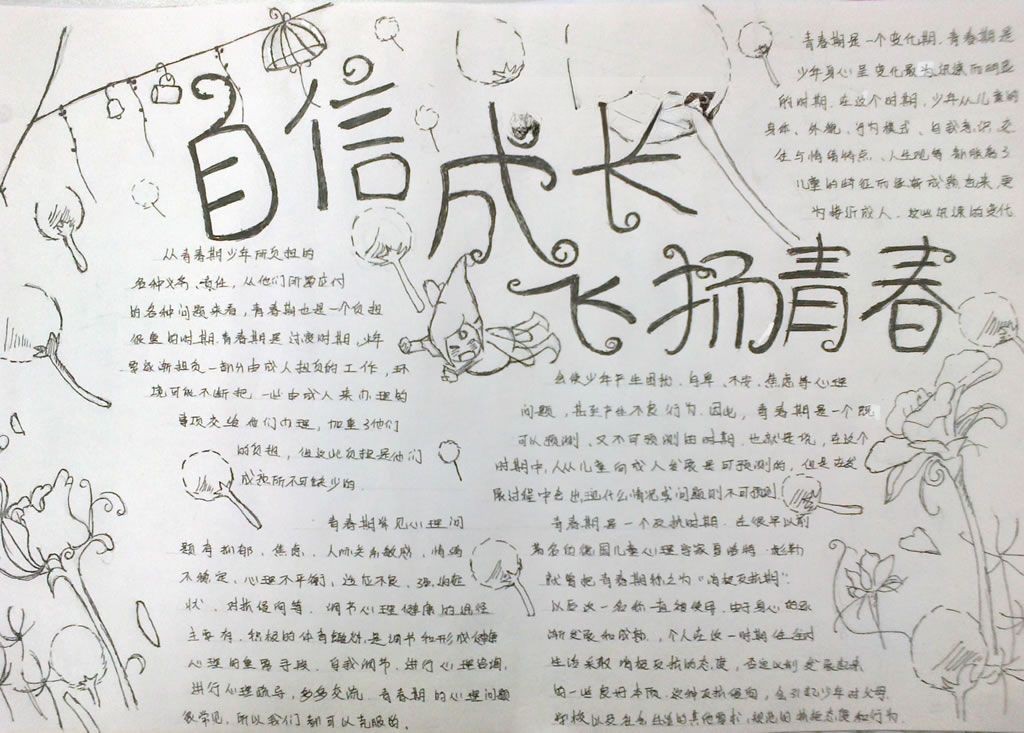 自信成长
飞扬青春
青春期是一个变化期.青春期是
少年身心呈变化最为迅速而明显
的时期.在这个时期,少年从儿童的
身体、外貌、行为模式、自我意识、交
往与情绪特点、人生观等,都脱离了
儿童的特征而逐渐成熟起来,更
为接近成人.这些迅速的变化
会使少年产生困扰.自卑、不安、焦虑等心理
问题,甚至产生不良行为.因此,青春期是一个既
可以预测、又不可预测的时期.也就是说,在这个
时期中,人从儿童向成人发展是可预测的,但是在发
展过程中会出现什么情况或问题则不可预测
从青春期少年所负担的
各种义务、责任,从他们所要应付
的各种问题来看,青春期也是一个负担
很重的时期.青春期是过渡时期,少年
要逐渐担负一部分由成人担负的工作,环
境可能不断把一些由成人来办理的
事项交给他们办理,加重了他们
的负担,但这些负担是他们
成熟所不可缺少的.
青春期常见心理问
题有抑郁、焦虑、人际关系敏感,情绪
不稳定、心理不平衡,适应不良、强迫症
状、对抗倾向等.调节心理健康的途径
主要有.积极的体育锻炼是调节和形成健康
心理的重要手段.自我调节.进行心理咨询,
进行心理疏导,多多交流.青春期的心理问题
很常见,所以我们都可以克服的.
青春期是一个反抗时期.在很早以前
著名的德国儿童心理学家夏洛特·彪勒
就曾把青春期称之为"消极反抗期".
以后这一名称一直被使用.由于身心的逐
渐发展和成熟,个人在这一时期往往对
生活采取消极反抗的态度,否定以前发展起来
的一些良好本质.这种反抗倾向,会引起少年对父母.
学校以及社会生活的其他要求、规范的抗拒态度和行为.